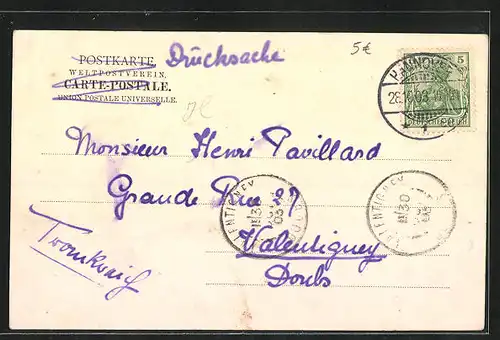 POSTKARTE Drucksache 5€
WELTPOSTVEREIN.
CARTE-POSTALE.
UNION POSTALE UNIVERSELLE.
HANNOVER
5
03
Monsieur Henri Pavillard
Grande Rue 27
VALENTIGNEY
30
03
VALENTIGNEY
30
Valentigney
Doubs
Frankreich